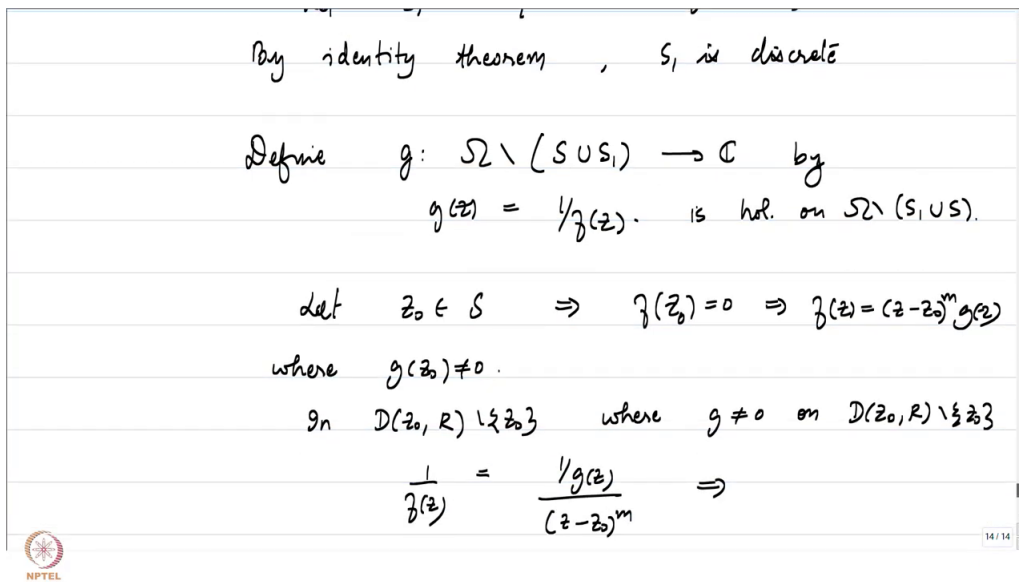 By identity theorem , S₁ is discrete
Define g: Ω \ (S ∪ S₁) → ℂ by
g(z) = 1/f(z). is hol. on Ω \ (S₁ ∪ S).
Let z₀ ∈ S ⇒ f(z₀) = 0 ⇒ f(z) = (z-z₀)ᵐ g(z)
where g(z₀) ≠ 0.
In D(z₀, R) \ {z₀} where g ≠ 0 on D(z₀, R) \ {z₀}
1/f(z) = (1/g(z))/(z-z₀)ᵐ ⇒
14 / 14
NPTEL